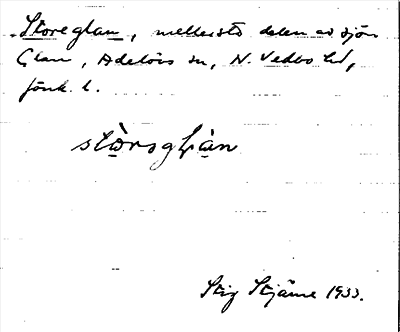 Storeglan, mellersta delen av sjön
Glan, Adelövs sn, N. Vedbo hd,
Jönk. l.
stòrsgḷàn
Stig Stjärne 1933.